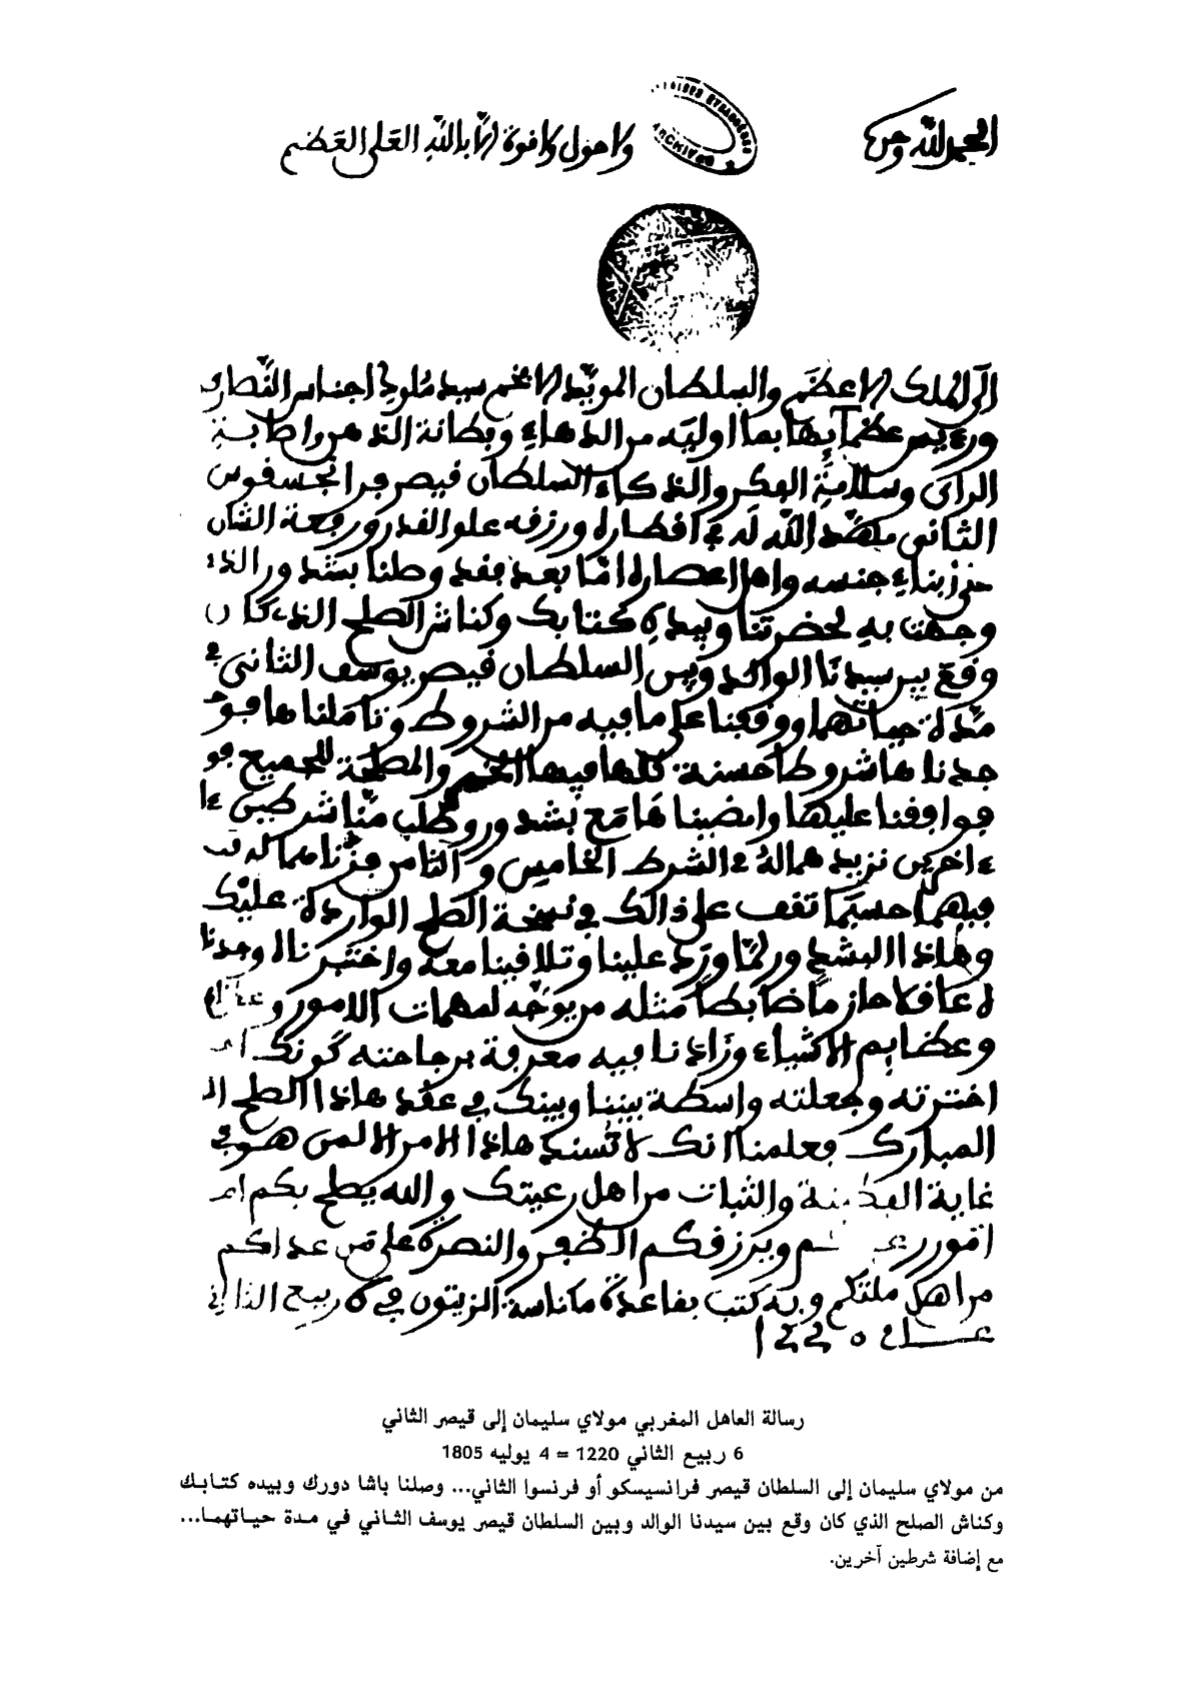 الحمد لله وحده
ولا حول ولا قوة إلا بالله العلي العظيم
ARCHIVES
إلى الملك الاعظم والسلطان المويد الافخم سيد ملوك اجناس النصارى
بما اوليه من الدهاء وبطانة الذهن واصابة
الراي وسلامة الفكر والذكاء السلطان قيصر فرانجسقوس
الثاني مهد الله له في اقطاره ورزقه علو القدر ورفعة الشان
ابناء جنسه واهل اعصاره اما بعد فقد وصلنا بشدور الذي
وجهت به لحضرتنا وبيده كتابك وكناش الصلح الذي كان
وقع بين سيدنا الوالد وبين السلطان قيصر يوسف الثاني في
مدة حياتهما ووقفنا على ما فيه من الشروط وتاملناها فو
جدناها شروطا حسنة كلها فيها الخير والمصلحة للجميع فو
فوافقنا عليها وامضيناها مع بشدور وطلب منا شرطين ءا
ءاخرين نزيدهما له في الشرط الخامس والثامن فزدناهما له
فيهما حسبما تقف على ذالك في نسخة الصلح الواردة عليك
وهاذا البشدور لما ورد علينا وتلاقينا معه واختبرناه وجدنا
ه عاقلا حازما ضابطا مثله من يوجه لمهمات الامور
وعظايم الاشياء وزادنا فيه معرفة برجاحته كونك
اخترته وجعلته واسطة بيننا وبينك في عقد هاذا الصلح ال
المبارك فعلمنا انك لا تسند هاذا الامر الا لمن هو في
غاية والثبات من اهل رعيتك والله يصلح بكم
اموور ويرزقكم الظفر والنصرة على من عداكم
من اهل ملتكم وبه كتب بقاعدة مكناسة الزيتون في 6 ربيع الثاني
عــام 1220
رسالة العاهل المغربي مولاي سليمان إلى قيصر الثاني
6 ربيع الثاني 1220 = 4 يوليه 1805
من مولاي سليمان إلى السلطان قيصر فرانسيسكو أو فرنسوا الثاني... وصلنا باشا دورك وبيده كتابك
وكناش الصلح الذي كان وقع بين سيدنا الوالد وبين السلطان قيصر يوسف الثاني في مدة حياتهما...
مع إضافة شرطين آخرين.